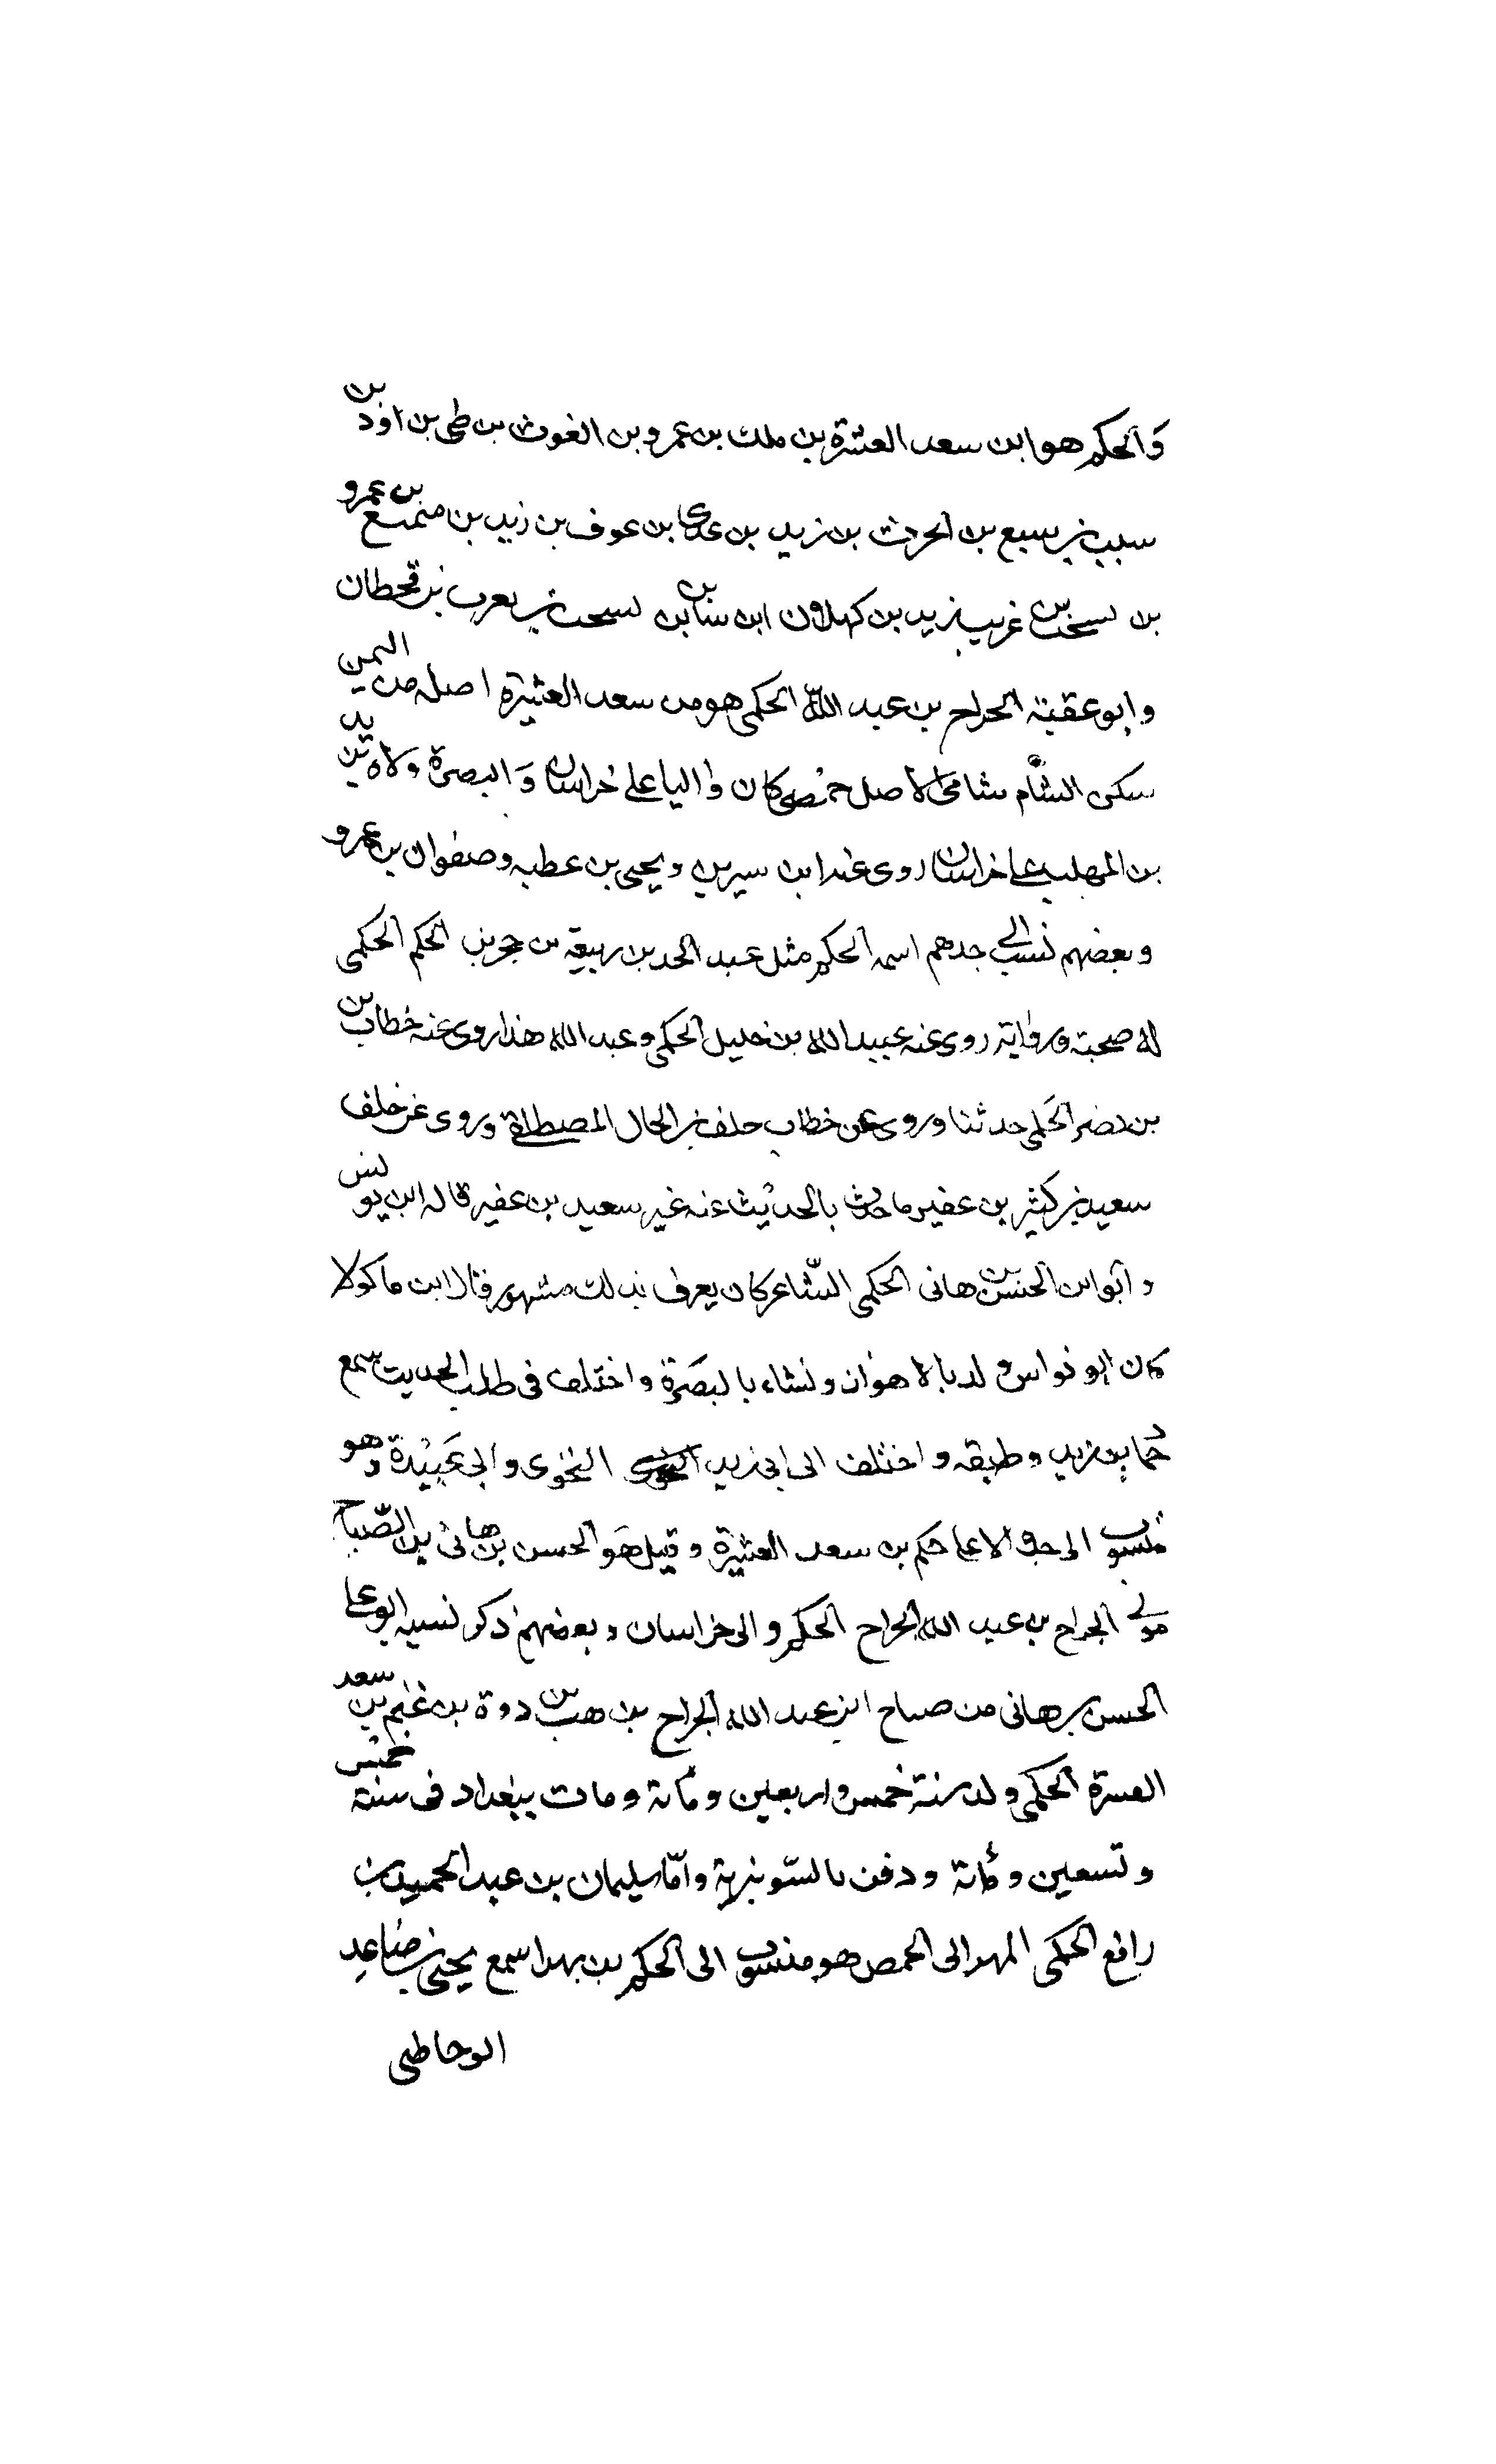 والحكم هو ابن سعد العشرة بن ملك بن عمرو بن الغوث بن طى بن اود بن
سبب بن سبيع بن الحرث بن زيد بن عدى بن عوف بن زيد بن منميع بن عمرو
بن يسخب بن غريب بن زيد بن كهلاون ابن سبا بن يسحب بن يعرب بن قحطان
وابو عقبة الجراح بن عبد الله الحكمى هو من سعد العشيرة اصله من اليمن
سكن الشام شامى الاصل حمصى كان واليا على خراسان والبصرة ولاه يزيد
بن المهلب على خراسان روى عنه ابن سيرين ويحيى بن عطيه وصفوان بن عمرو
وبعضهم نسب الى جدهم اسمه الحكم مثل عبد الحد بن ربيعة بن جر بن الحكم الحكمى
له صحبة ورواية روى عنه عبيد الله بن خليل الحكمى وعبد الله هذا روى عنه خطاب بن
بن نضر الحكمى حدثنا وروى عن خطاب خلف بن الحال المصطلق وروى عن خلف
سعيد بن كثير بن عفير ما حدث بالحديث عنه غير سعيد بن عفير قاله ابن يونس
وابو ابن الحسن بن هانى الحكمى الشاعر كان يعرف بذلك مشهور فقال ابن ماكولا
كان ابو نواس ولد بالاهواز ونشاء بالبصرة واختلف فى طلب الحديث سمع
حماد بن زيد وطبقه واختلف الى ابى زيد النحوى وابى عبيدة وهو
منسوب الى جد الاعلى حكم بن سعد العشيرة وقيل هو الحسن بن هانئ بن الصباح
مولى الجراح بن عبد الله الجراح الحكم والى خراسان وبعضهم ذكر نسبه ابو على
الحسن بن هانى من صباح ابن عبد الله الجراح بن هب بن دوة بن غنم بن سعد
العسرة الحكمى ولد سنة خمس واربعين ومائة ومات ببغداد فى سنة خمس
وتسعين ومائة ودفن بالشونيزية واما سليمان بن عبد الحميد بن
رافع الحكمى البهرانى الحمصى هو منسوب الى الحكم بن بهرا سمع يحيى بن صاعد
الوحاظى